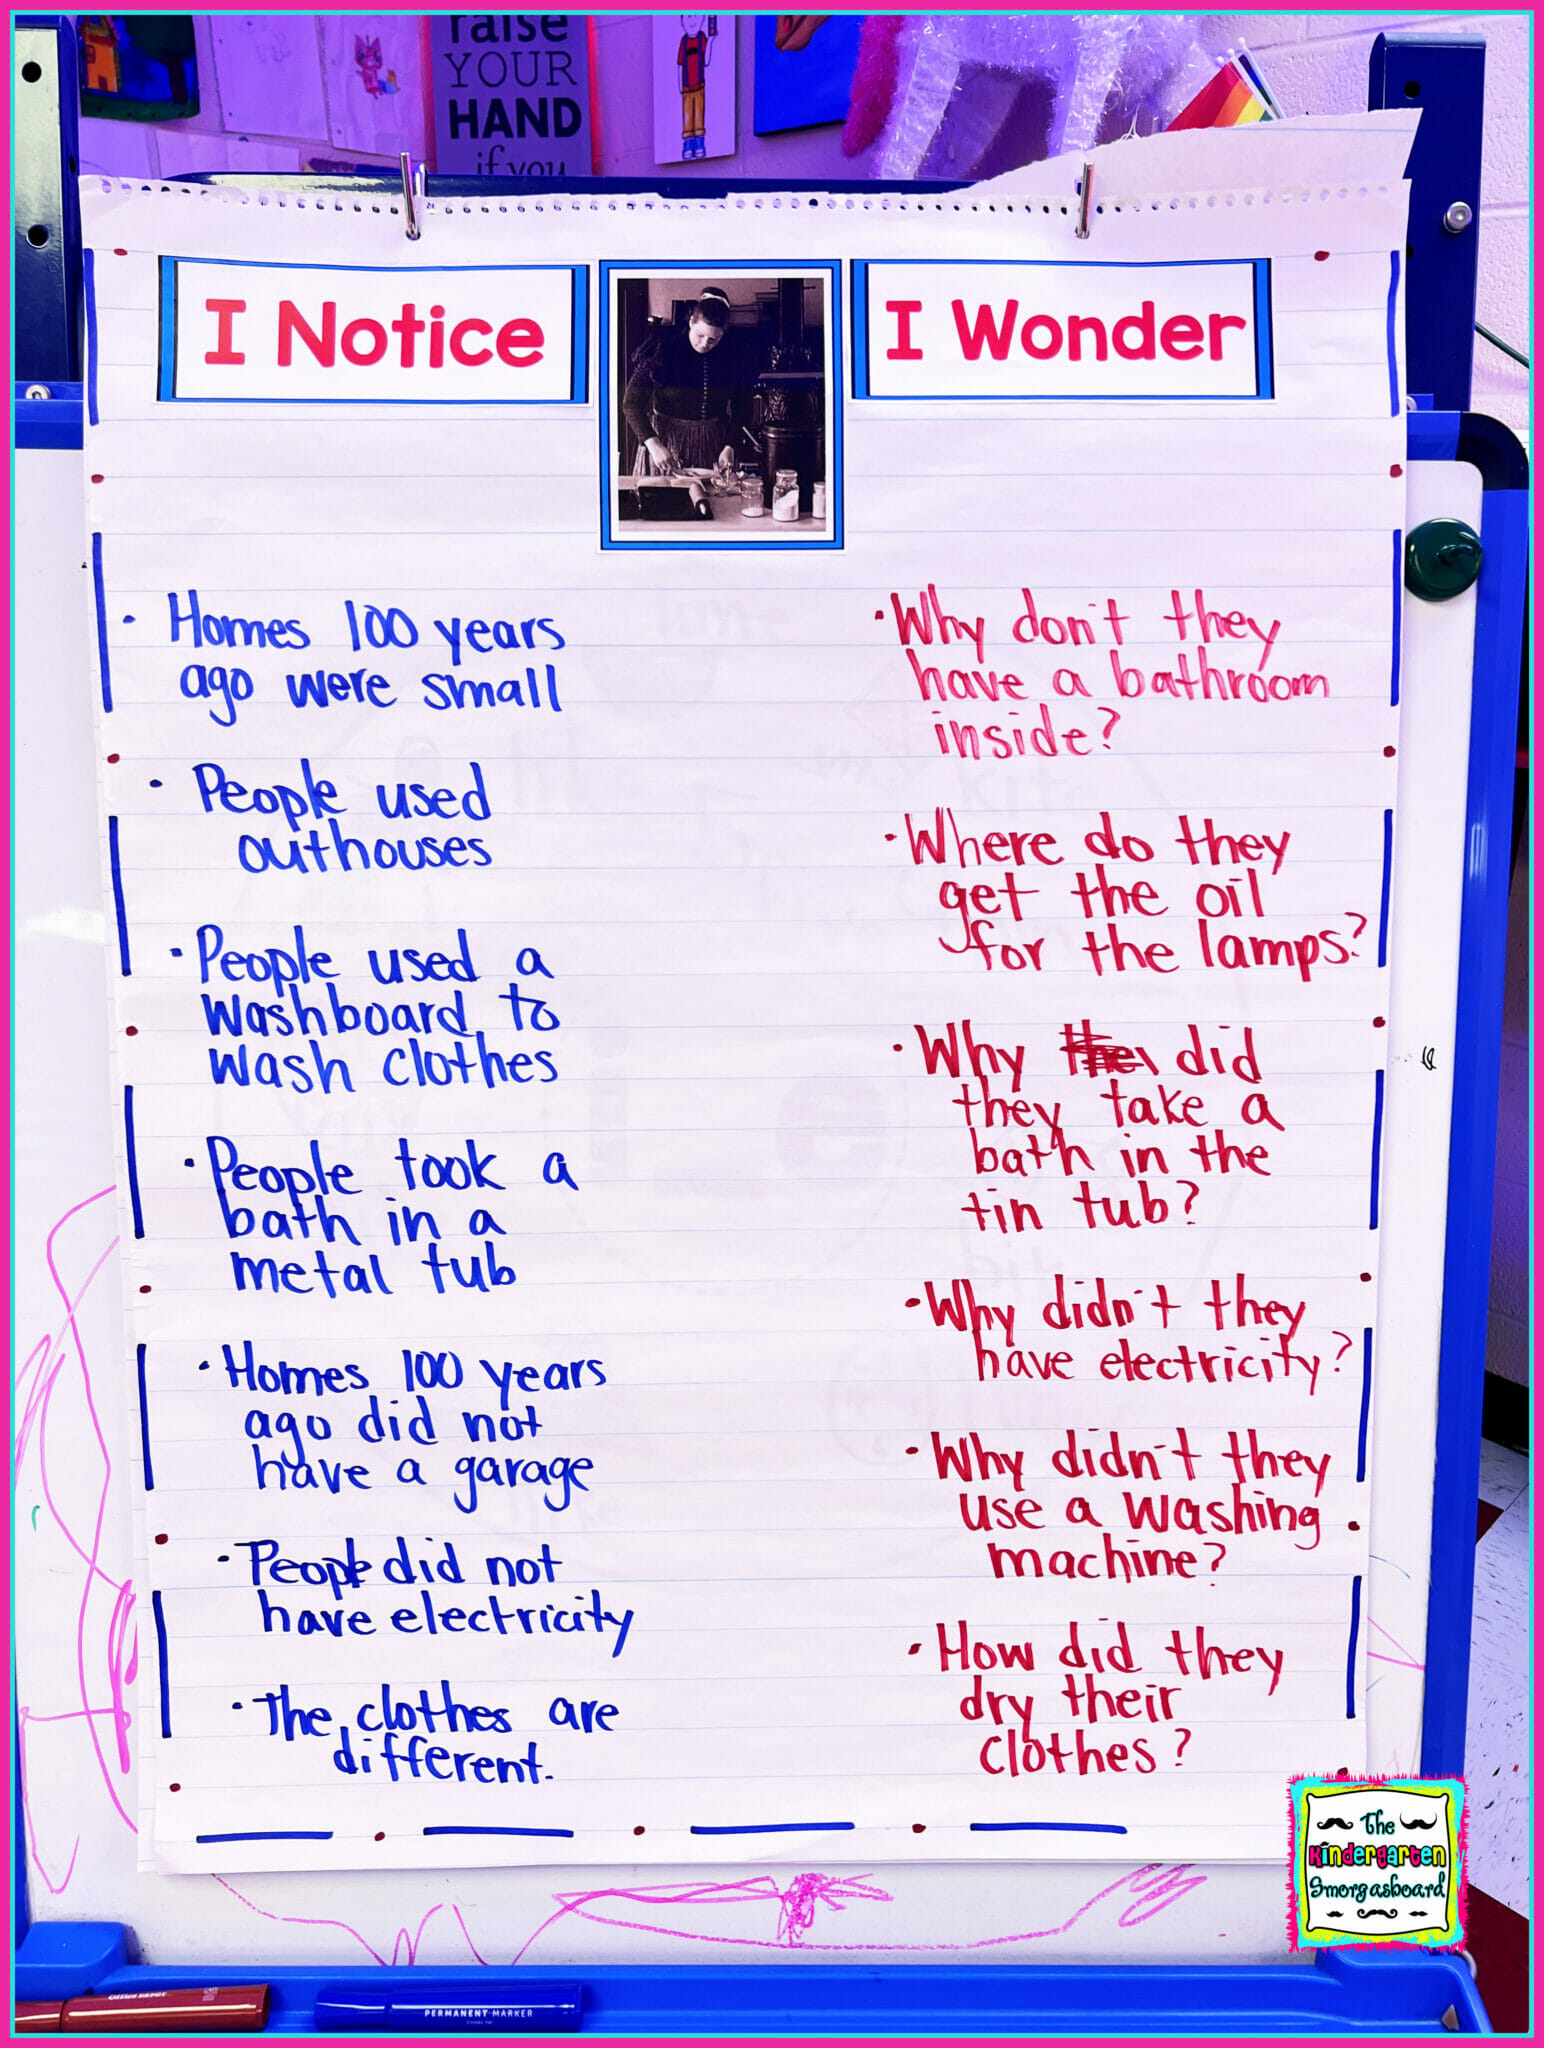 raise
YOUR
HAND
if you
I Notice
I Wonder
· Homes 100 years
ago were small
· People used
outhouses
· People used a
washboard to
wash clothes
· People took a
bath in a
metal tub
· Homes 100 years
ago did not
have a garage
· People did not
have electricity
· The clothes are
different.
· Why don't they
have a bathroom
inside?
· Where do they
get the oil
for the lamps?
· Why did
they take a
bath in the
tin tub?
· Why didn't they
have electricity?
· Why didn't they
use a washing
machine?
· How did they
dry their
clothes?
The
Kindergarten
Smorgasboard
Office DEPOT
PERMANENT MARKER